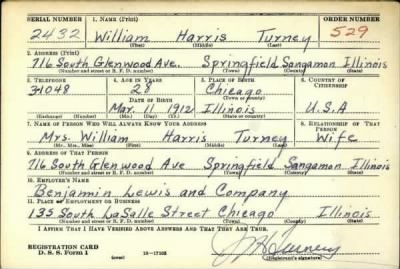 SERIAL NUMBER 1. NAME (Print) ORDER NUMBER
2432 William Harris Turney 529
(First) (Middle) (Last)
2. ADDRESS (Print)
716 South Glenwood Ave. Springfield Sangamon Illinois
(Number and street or R. F. D. number) (Town) (County) (State)
3. TELEPHONE 4. AGE IN YEARS 5. PLACE OF BIRTH 6. COUNTRY OF CITIZENSHIP
31048 28 Chicago
DATE OF BIRTH (Town or county)
Mar. 11 1912 Illinois U.S.A
(Exchange) (Number) (Mo.) (Day) (Yr.) (State or country)
7. NAME OF PERSON WHO WILL ALWAYS KNOW YOUR ADDRESS 8. RELATIONSHIP OF THAT PERSON
Mrs. William Harris Turney Wife
(Mr., Mrs., Miss) (First) (Middle) (Last)
9. ADDRESS OF THAT PERSON
716 South Glenwood Ave Springfield Sangamon Illinois
(Number and street or R. F. D. number) (Town) (County) (State)
10. EMPLOYER'S NAME
Benjamin Lewis and Company
11. PLACE OF EMPLOYMENT OR BUSINESS
135 South LaSalle Street Chicago Illinois
(Number and street or R. F. D. number) (Town) (County) (State)
I AFFIRM THAT I HAVE VERIFIED ABOVE ANSWERS AND THAT THEY ARE TRUE.
REGISTRATION CARD
D. S. S. Form 1 (over) 16—17105 (Registrant's signature)